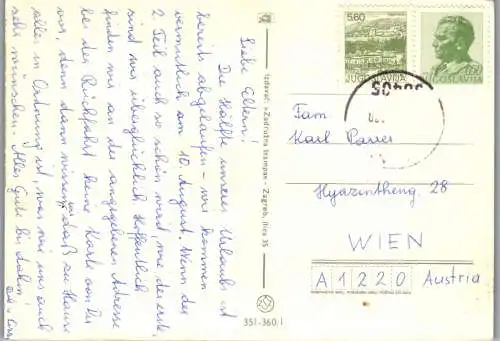 Liebe Eltern!
Die Hälfte unseres Urlaubs ist
bereits abgelaufen – wir kommen
vermutlich am 10. August. Wenn der
2. Teil auch so schön wird, wie der erste
sind wir überglücklich. Hoffentlich
finden wir an der angegebenen Adresse
bei der Rückfahrt keine Karte von Ihr
vor, denn dann wissen wir daß zu Hause
alles in Ordnung ist, was wir uns auch
sehr wünschen. Alles Gute bis dahin!
Izdavač: »Zadružna štampa« – Zagreb, Ilica 35
351-360.1
5,60
JUGOSLAVIJA
0,50
JUGOSLAVIJA
Fam.
Karl
Hyazintheng. 28
WIEN
A 1220 Austria